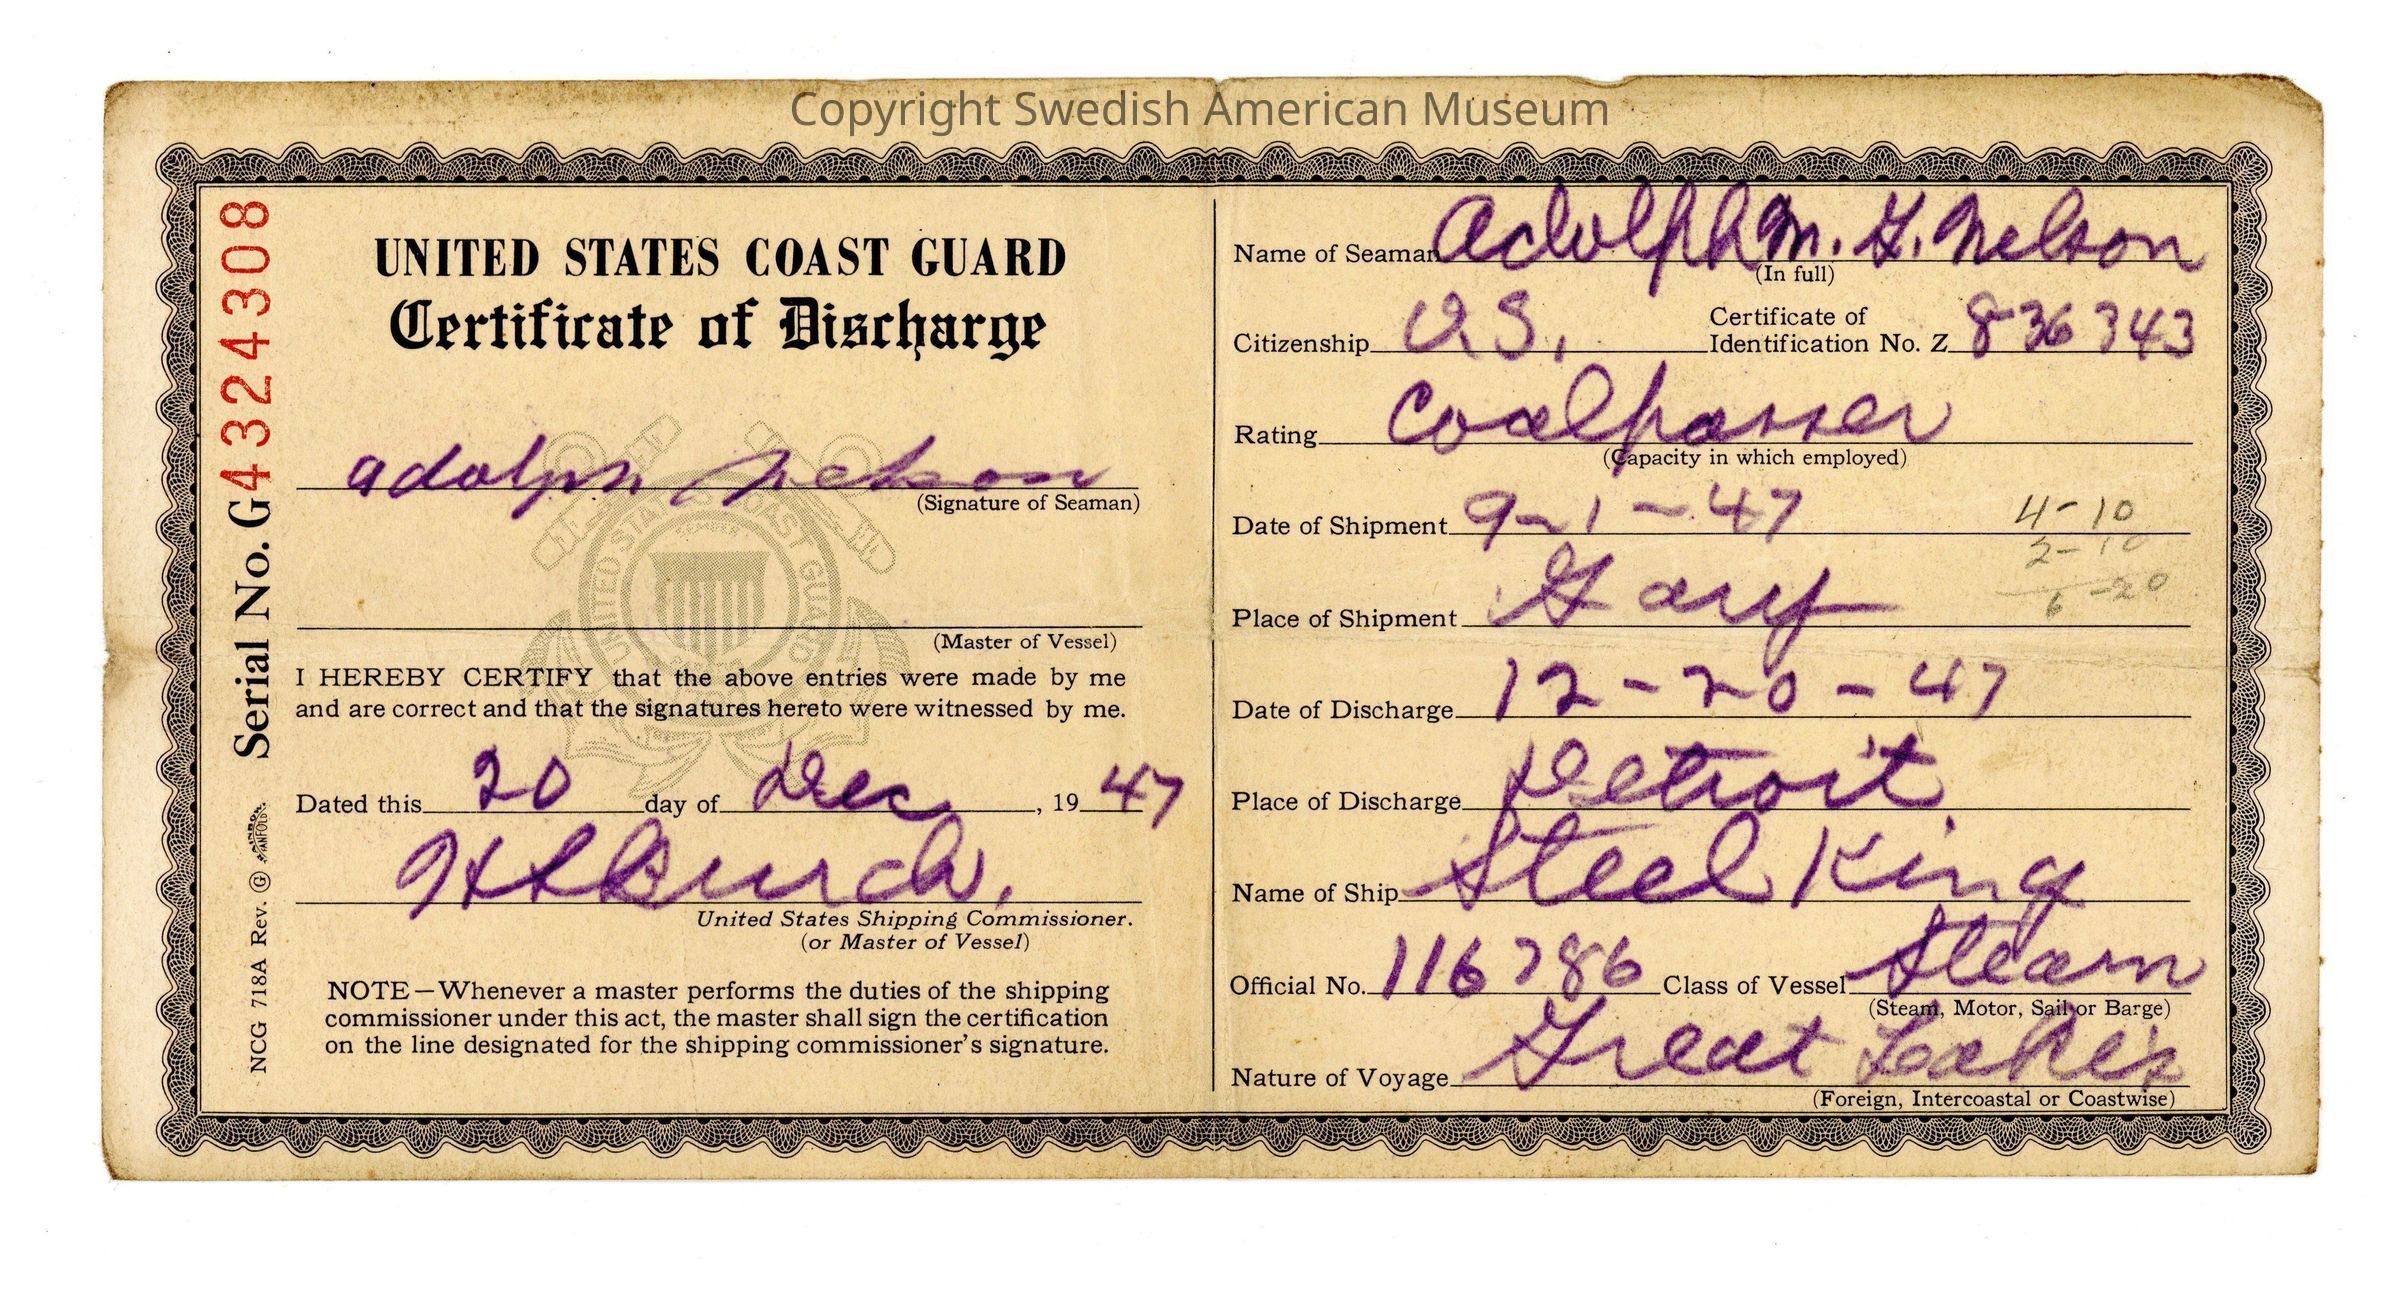 Copyright Swedish American Museum
Serial No. G4324308
NCG 718A Rev.
UNITED STATES COAST GUARD
Certificate of Discharge
Adolph Nelson
(Signature of Seaman)
(Master of Vessel)
I HEREBY CERTIFY that the above entries were made by me
and are correct and that the signatures hereto were witnessed by me.
Dated this 20 day of Dec, 1947
H S Burch.
United States Shipping Commissioner.
(or Master of Vessel)
NOTE—Whenever a master performs the duties of the shipping
commissioner under this act, the master shall sign the certification
on the line designated for the shipping commissioner's signature.
Name of Seaman Adolph M. G. Nelson
(In full)
Certificate of
Citizenship U.S. Identification No. Z 836343
Rating Coalpasser
(Capacity in which employed)
Date of Shipment 9-1-47
4-10
2-10
6-20
Place of Shipment Gary
Date of Discharge 12-20-47
Place of Discharge Detroit
Name of Ship Steel King
Official No. 116786 Class of Vessel Steam
(Steam, Motor, Sail or Barge)
Nature of Voyage Great Lakes
(Foreign, Intercoastal or Coastwise)